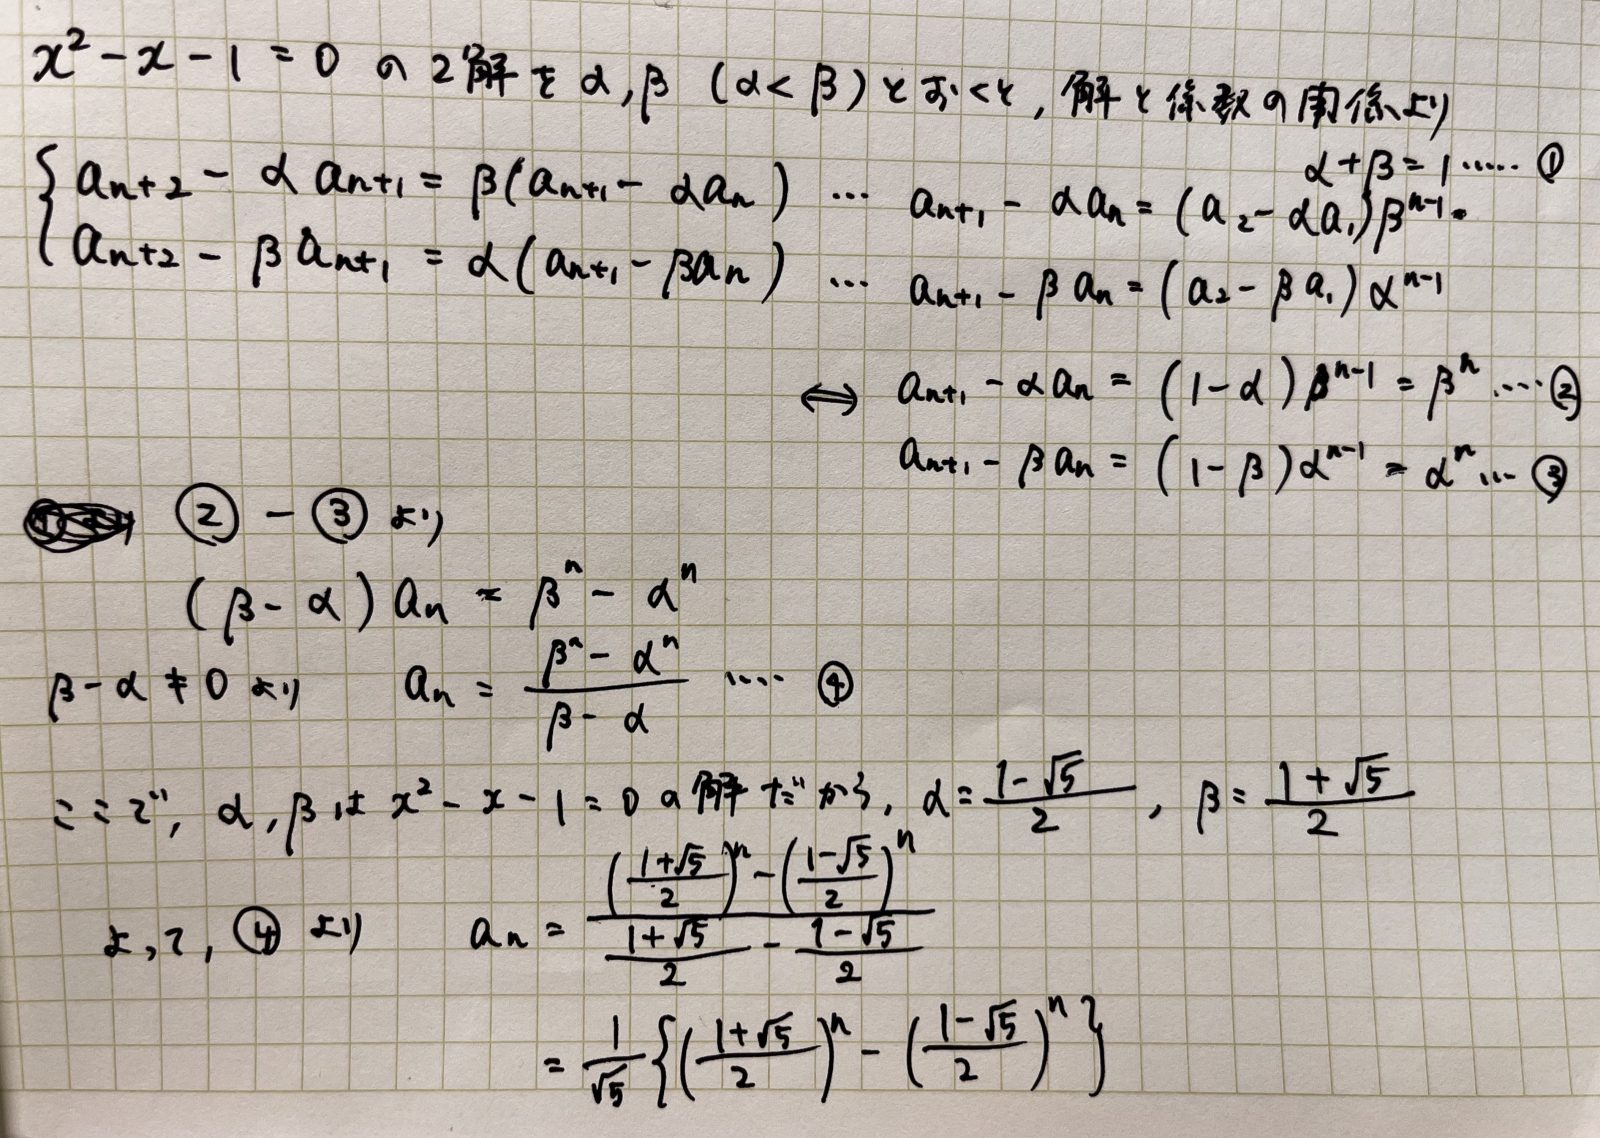 x² - x - 1 = 0 の2解を α, β (α < β) とおくと, 解と係数の関係より
α + β = 1 ····· ①
{ aₙ₊₂ - α aₙ₊₁ = β(aₙ₊₁ - αaₙ) ··· aₙ₊₁ - αaₙ = (a₂ - αa₁)βⁿ⁻¹
aₙ₊₂ - β aₙ₊₁ = α(aₙ₊₁ - βaₙ) ··· aₙ₊₁ - βaₙ = (a₂ - βa₁)αⁿ⁻¹
⟺ aₙ₊₁ - αaₙ = (1-α)βⁿ⁻¹ = βⁿ ···· ②
aₙ₊₁ - βaₙ = (1-β)αⁿ⁻¹ = αⁿ ··· ③
② - ③ より
(β - α) aₙ = βⁿ - αⁿ
β - α ≠ 0 より aₙ = (βⁿ - αⁿ)/(β - α) ···· ④
ここで, α, β は x² - x - 1 = 0 の解だから, α = (1-√5)/2 , β = (1+√5)/2
よって, ④ より aₙ = (((1+√5)/2)ⁿ - ((1-√5)/2)ⁿ)/((1+√5)/2 - (1-√5)/2)
= 1/√5 {((1+√5)/2)ⁿ - ((1-√5)/2)ⁿ}